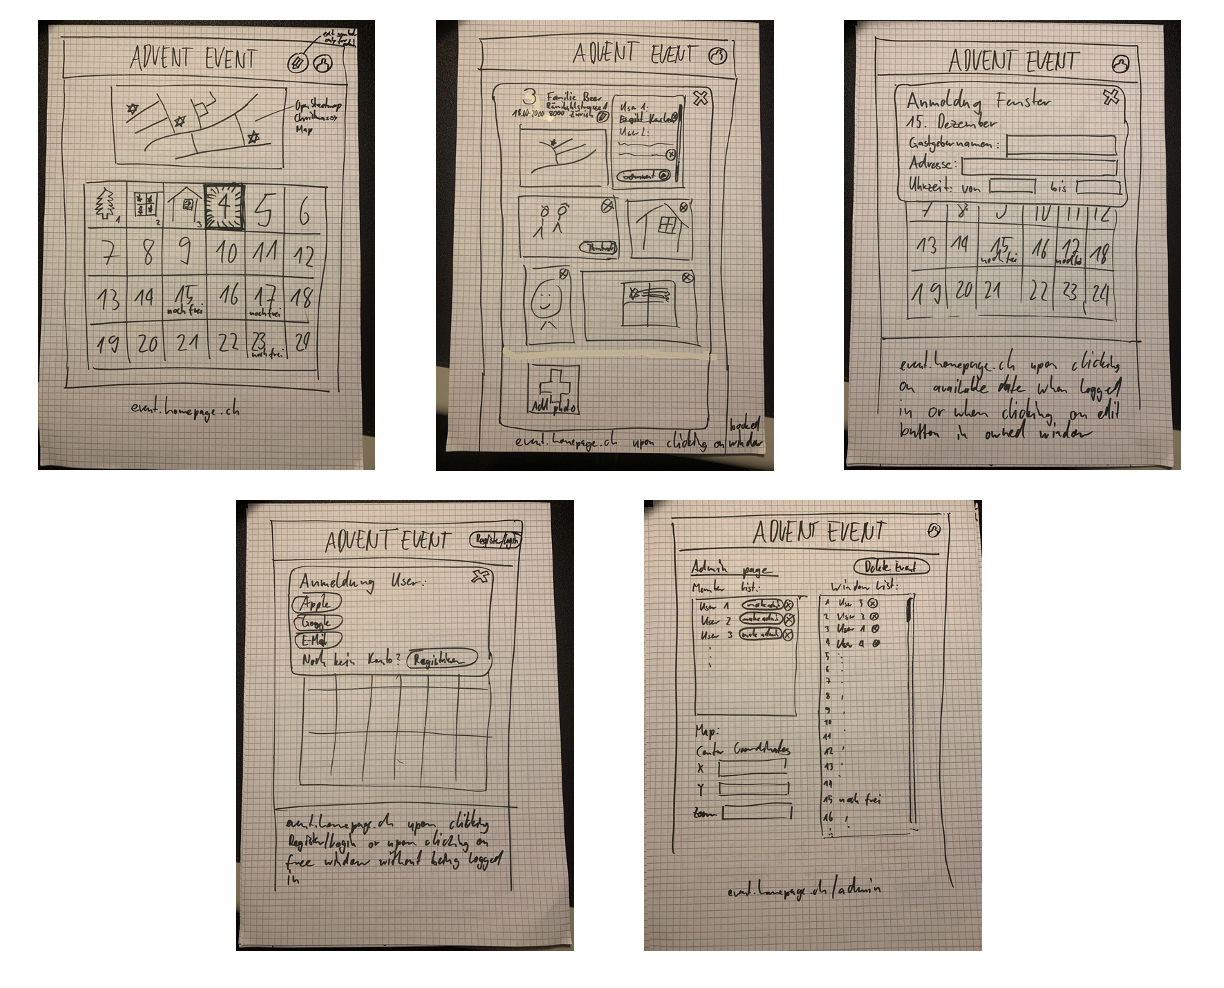 ADVENT EVENT
OpenStreetmap
Map
1 2 3 4 5 6
7 8 9 10 11 12
13 14 15 16 17 18
noch frei noch frei
19 20 21 22 23 24
noch frei
event.homepage.ch
ADVENT EVENT
3 Familie Beer
8000 Zürich
User 1:
User 2:
Add photo
event.homepage.ch upon clicking on booked window
ADVENT EVENT
Anmeldung Fenster
15. Dezember
Gastgebernamen:
Adresse:
Uhrzeit: von bis
7 8 9 10 11 12
13 14 15 16 17 18
noch frei noch frei
19 20 21 22 23 24
event.homepage.ch upon clicking
on available date when logged
in or when clicking on edit
button in owned window
ADVENT EVENT
Register/login
Anmeldung User:
Apple
Google
E-Mail
Noch kein Konto? Registrieren
event.homepage.ch upon clicking
Register/login or upon clicking on
free window without being logged
in
ADVENT EVENT
Admin page
Delete Event
Member list:
User 1 make admin
User 2 make admin
User 3 make admin
Map:
Center Coordinates
X
Y
Zoom
Window list:
1 User 3
2 User 2
3 User 1
4 User 4
5
6
7
8
9
10
11
12
13
14
15 noch frei
16
event.homepage.ch/admin